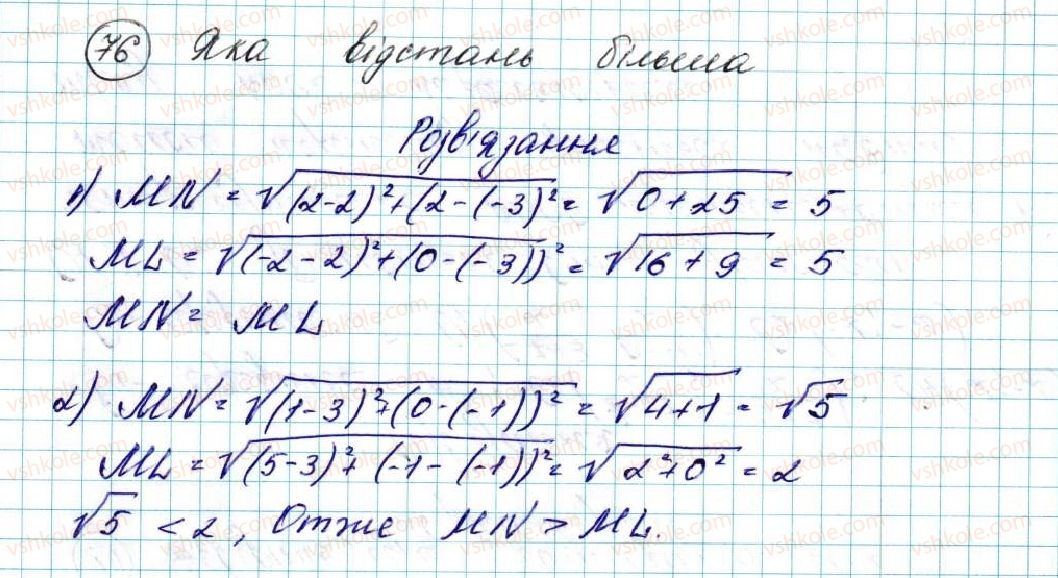 76 Яка відстань більша
Розв'язання
1) MN = √(2-2)²+(2-(-3)² = √0+25 = 5
ML = √(-2-2)²+(0-(-3))² = √16+9 = 5
MN = ML
2) MN = √(1-3)²+(0-(-1))² = √4+1 = √5
ML = √(5-3)²+(-1-(-1))² = √2²+0² = 2
√5 < 2, Отже MN > ML.